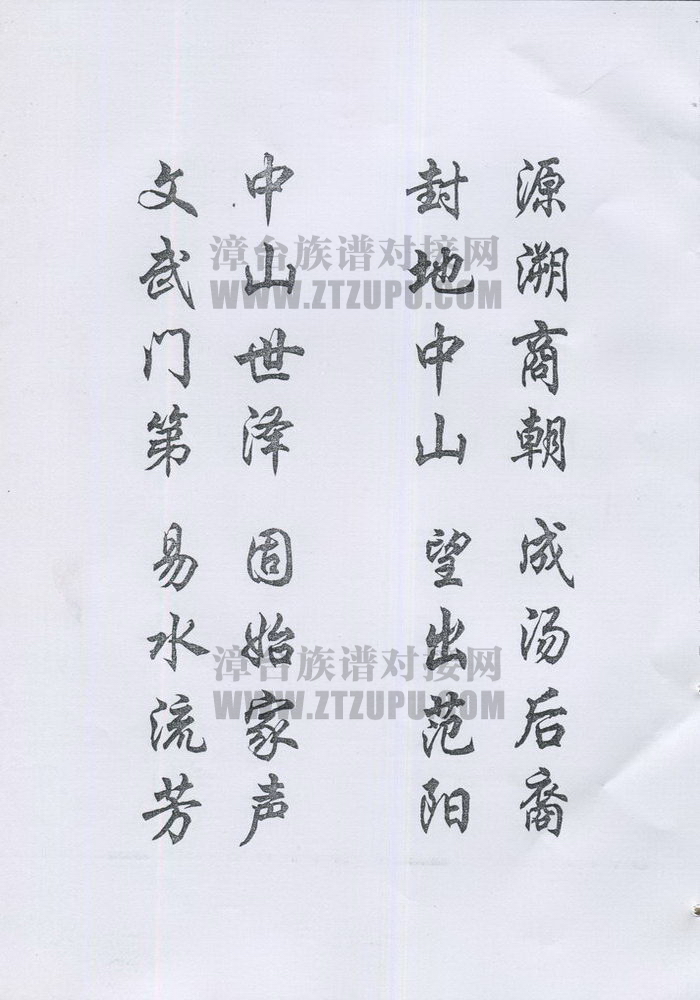 源溯商朝 成汤后裔
封地中山 望出范阳
中山世泽 固始家声
文武门第 易水流芳
漳台族谱对接网
WWW.ZTZUPU.COM
漳台族谱对接网
WWW.ZTZUPU.COM